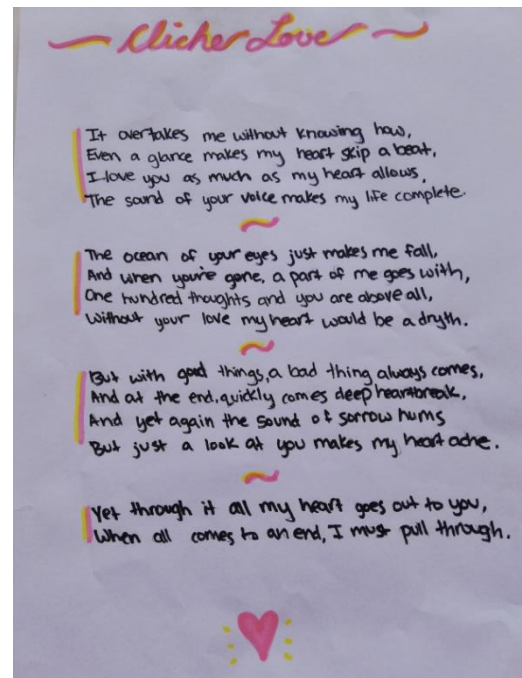 Clicher Love
It overtakes me without knowing how,
Even a glance makes my heart skip a beat,
I love you as much as my heart allows,
The sound of your voice makes my life complete.
The ocean of your eyes just makes me fall,
And when you're gone, a part of me goes with,
One hundred thoughts and you are above all,
Without your love my heart would be a dryth.
But with good things, a bad thing always comes,
And at the end, quickly comes deep heartbreak,
And yet again the sound of sorrow hums
But just a look at you makes my heart ache.
Yet through it all my heart goes out to you,
When all comes to an end, I must pull through.